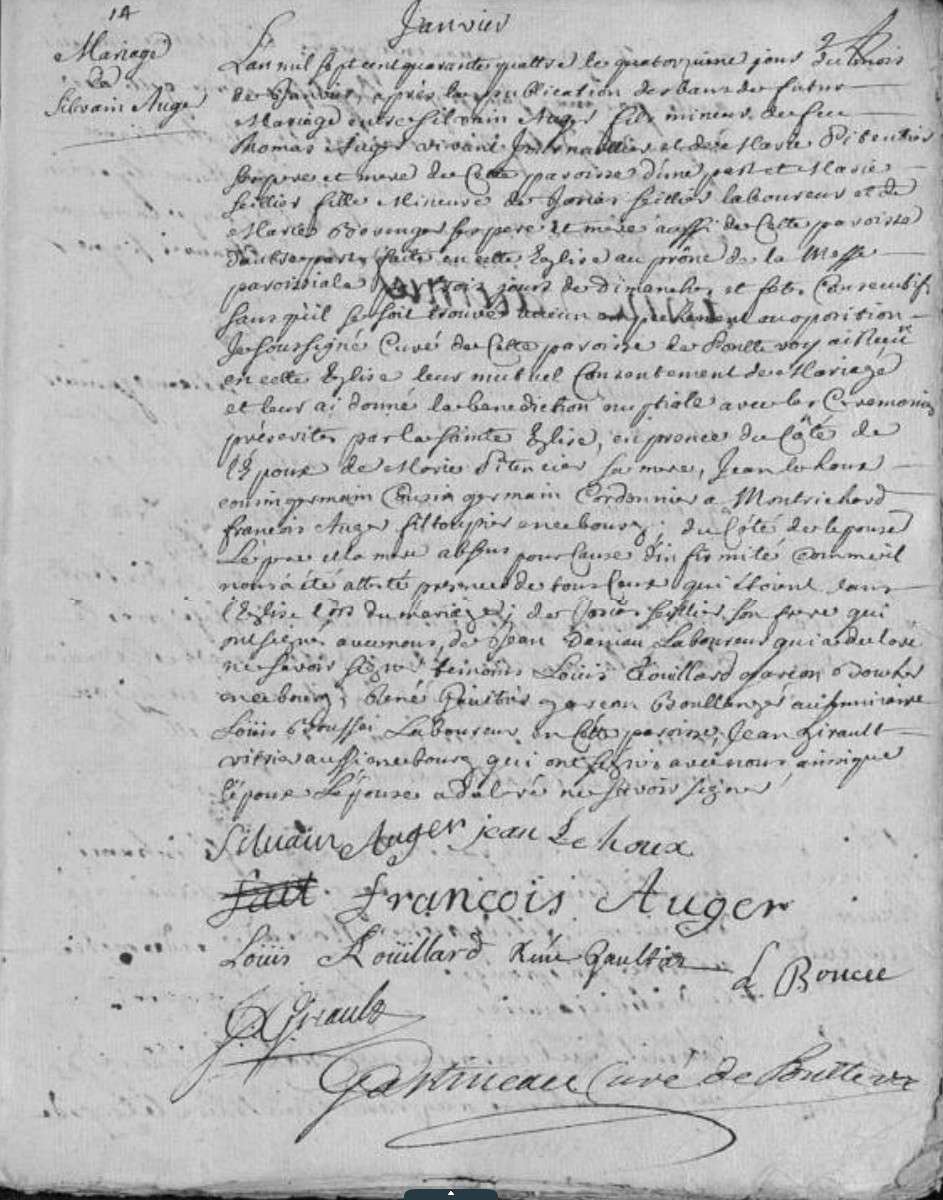 14
Janvier
Mariage
de
Silvain Auger
L'an mil sept cent quarante quattre le quatorzieme jour du mois
de Janvier, apres la publication des bans de futur
Mariage entre Silvain Auger fils mineur de feu
Thomas Auger vivant et de Marie
ses pere et mere de Cette paroisse d'une part et Marie
Seillier fille Mineure de Josias Seillier laboureur et de
Marie ses pere et mere aussi de Cette paroisse
d'autre part, faite en cette Eglise au prône de la Messe
paroissiale trois jours de Dimanches et fetes Consecutifs
sans qu'il se soit trouvé aucun empechement ou oposition
Je soussigné Curé de Cette paroisse de Pontlevoy ai Reçu
en cette Eglise leur mutuel Consentement de Mariage
et leur ai donné la benediction nuptiale avec les Ceremonies
prescrites par la Sainte Eglise, en presence du Côté de
l'Epoux de Marie sa mere, Jean lehoux
cousin germain Cousin germain Cordonnier a Montrichard
francois Auger en ce bourg; du Côté de lepouse
Le pere et la mere absens pour Cause d'infirmité Comme il
nous a été attesté presence de tous Ceux qui étoient dans
l'Eglise lors du mariage; de Josias Seillier son frere qui
ont signé avec nous, de Jean Laboureur qui a declaré
ne savoir signer temoins Louis Roüillard garcon
en ce bourg, René Gaultier garcon Boullanger aussi
Loüis Laboureur en Cette paroisse, Jean Girault
vitrier aussi en ce bourg qui ont signé avec nous ainsi que
l'époux L'épouse a declaré ne scavoir signer
Silvain Auger jean Le houx
fait françois Auger
Loüis Roüillard René Gaultier
L. Boucee
Girault
Gastineau Curé de Pontlevoy